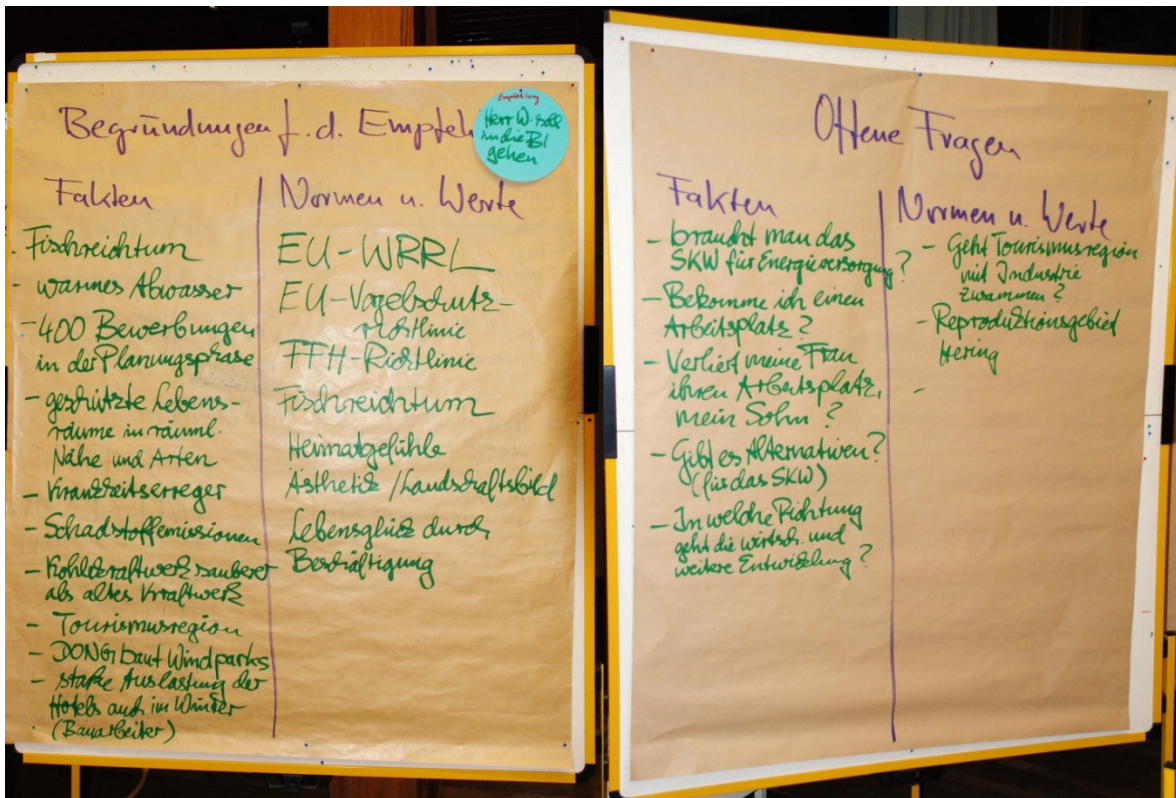 Begründungen f. d. Empfeh
Empfehlung
Herr W. soll
in die BI
gehen
Fakten
- Fischreichtum
- warmes Abwasser
- 400 Bewerbungen
in der Planungsphase
- geschützte Lebens-
räume in räuml.
Nähe und Arten
- Krankheitserreger
- Schadstoffemissionen
- Kohlekraftwerk sauberer
als altes Kraftwerk
- Tourismusregion
- DONG baut Windparks
- starke Auslastung der
Hotels auch im Winter
(Bauarbeiter)
Normen u. Werte
EU-WRRL
EU-Vogelschutz-
richtlinie
FFH-Richtlinie
Fischreichtum
Heimatgefühle
Ästhetik / Landschaftsbild
Lebensglück durch
Beschäftigung
Offene Fragen
Fakten
- braucht man das
SKW für Energieversorgung?
- Bekomme ich einen
Arbeitsplatz?
- Verliert meine Frau
ihren Arbeitsplatz,
mein Sohn?
- Gibt es Alternativen?
(für das SKW)
- In welche Richtung
geht die wirtsch. und
weitere Entwicklung?
Normen u. Werte
- Geht Tourismusregion
mit Industrie
zusammen?
- Reproduktionsgebiet
Hering
-